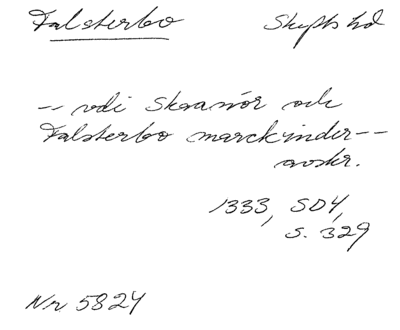 Falsterbo Skytts hd
-- vdi Skanör och
Falsterbo marckinder--
avskr.
1333, SD4,
s. 329
Nr 5824